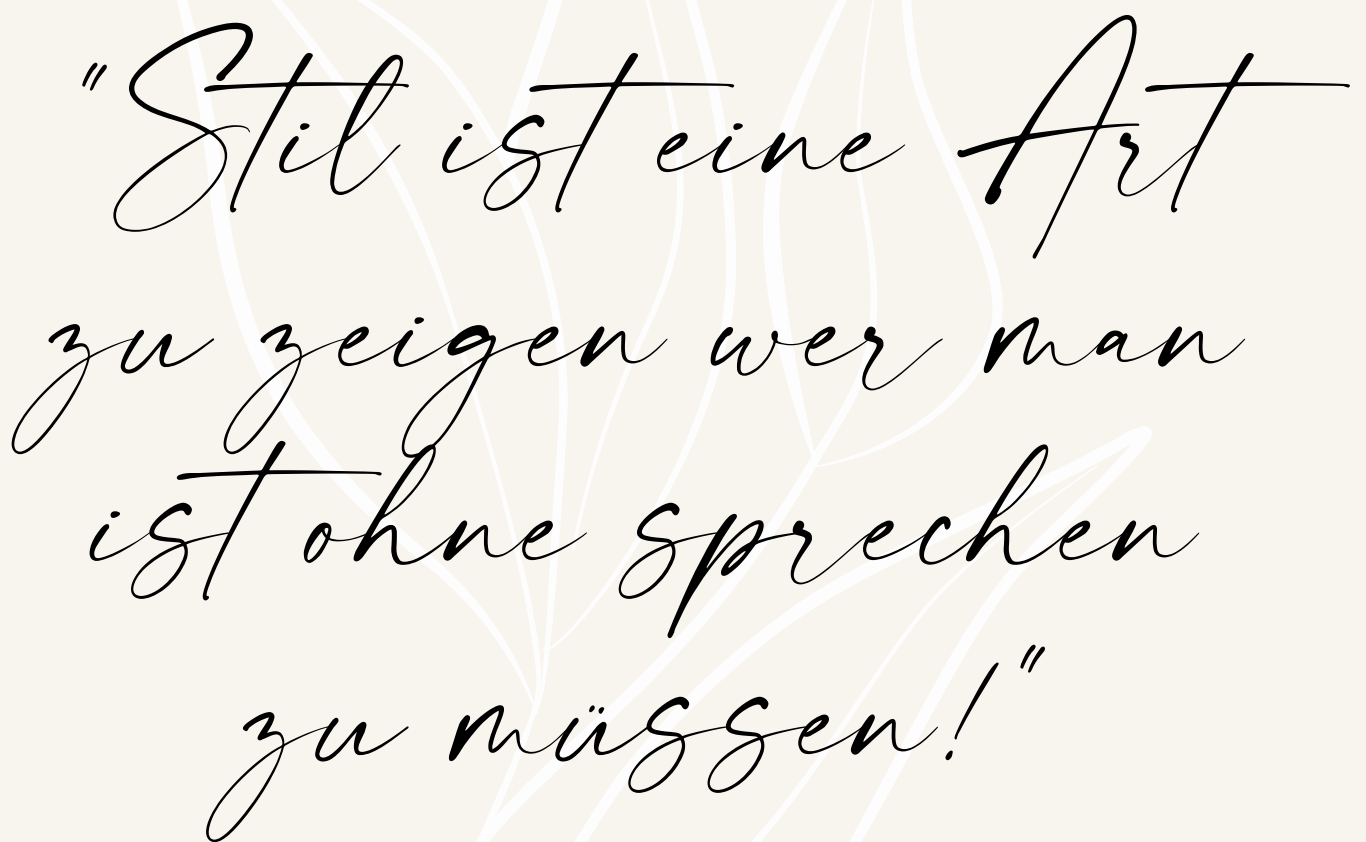 "Stil ist eine Art
zu zeigen wer man
ist ohne sprechen
zu müssen!"